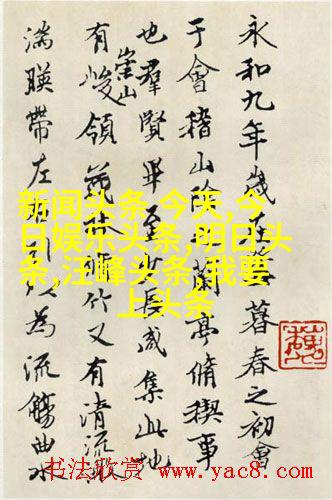 永和九年歲在暮春之初會
于會稽山陰蘭亭脩禊事
也羣賢畢至少長咸集此地
有崇山峻領茂林脩竹又有清流激
湍暎帶左右引以為流觴曲水
新闻头条,今天,今
日娱乐头条,明日头
条,汪峰头条,我要
上头条
书法欣赏 www.yac8.com